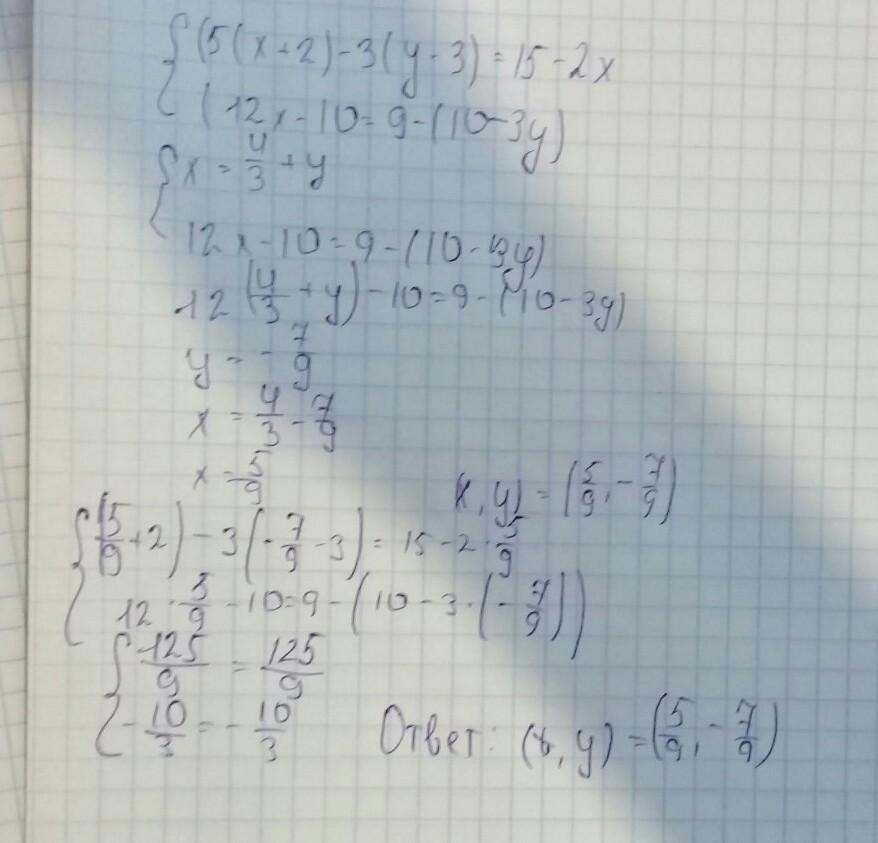 {(5(x+2)-3(y-3)=15-2x
(12x-10=9-(10-3y)
{x=4/3+y
12x-10=9-(10-3y)
12(4/3+y)-10=9-(10-3y)
y=-7/9
x=4/3-7/9
x=5/9
(x,y)=(5/9,-7/9)
{(5/9+2)-3(-7/9-3)=15-2·5/9
12·5/9-10=9-(10-3·(-7/9))
{125/9=125/9
-10/3=-10/3
Ответ: (x,y)=(5/9,-7/9)